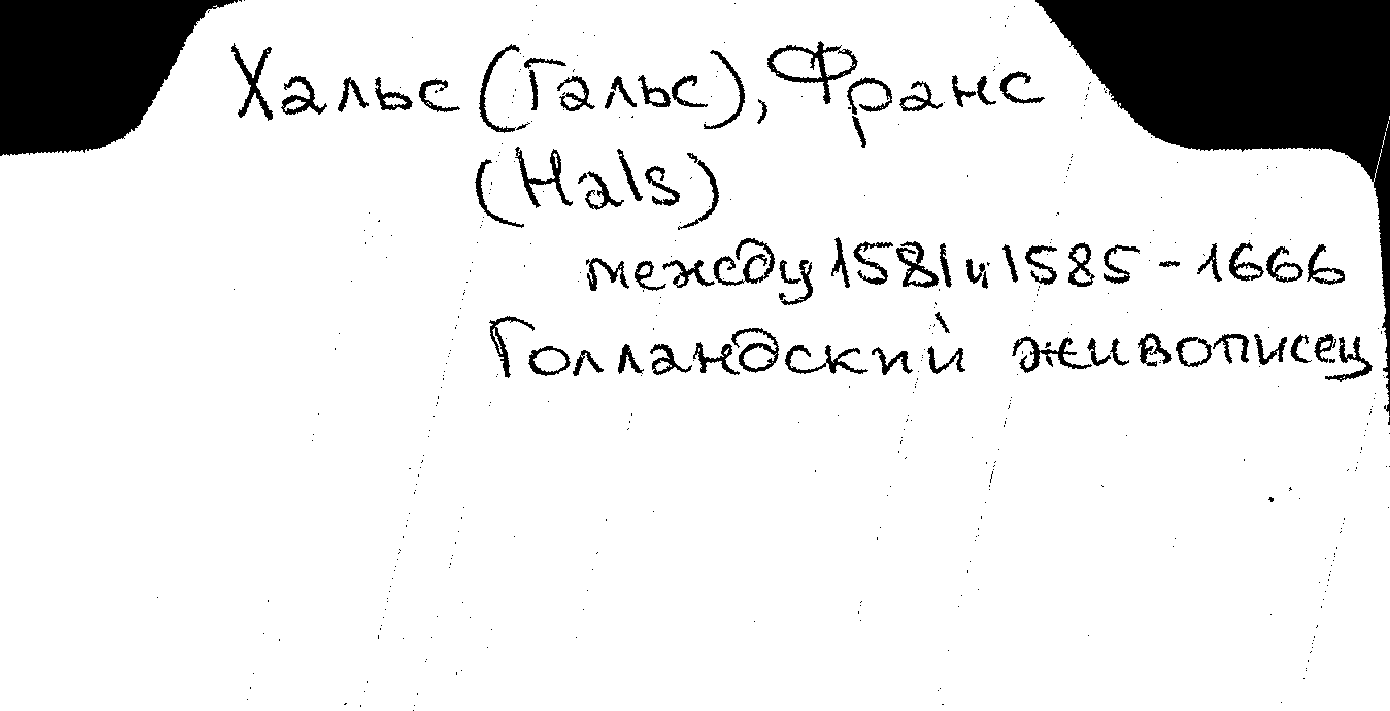 Хальс (Гальс), Франс
(Hals)
между 1581 и 1585 - 1666
Голландский живописец